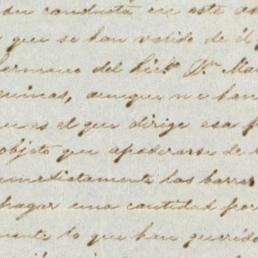 su conducta en este as
que se han valido de él p
hermano del Lic.º Dn Ma
quinas, aunque no han
es el que dirige esa f
objeto que apoderarse de
inmediatamente las barra
hagar una cantidad por
mente lo que han querido